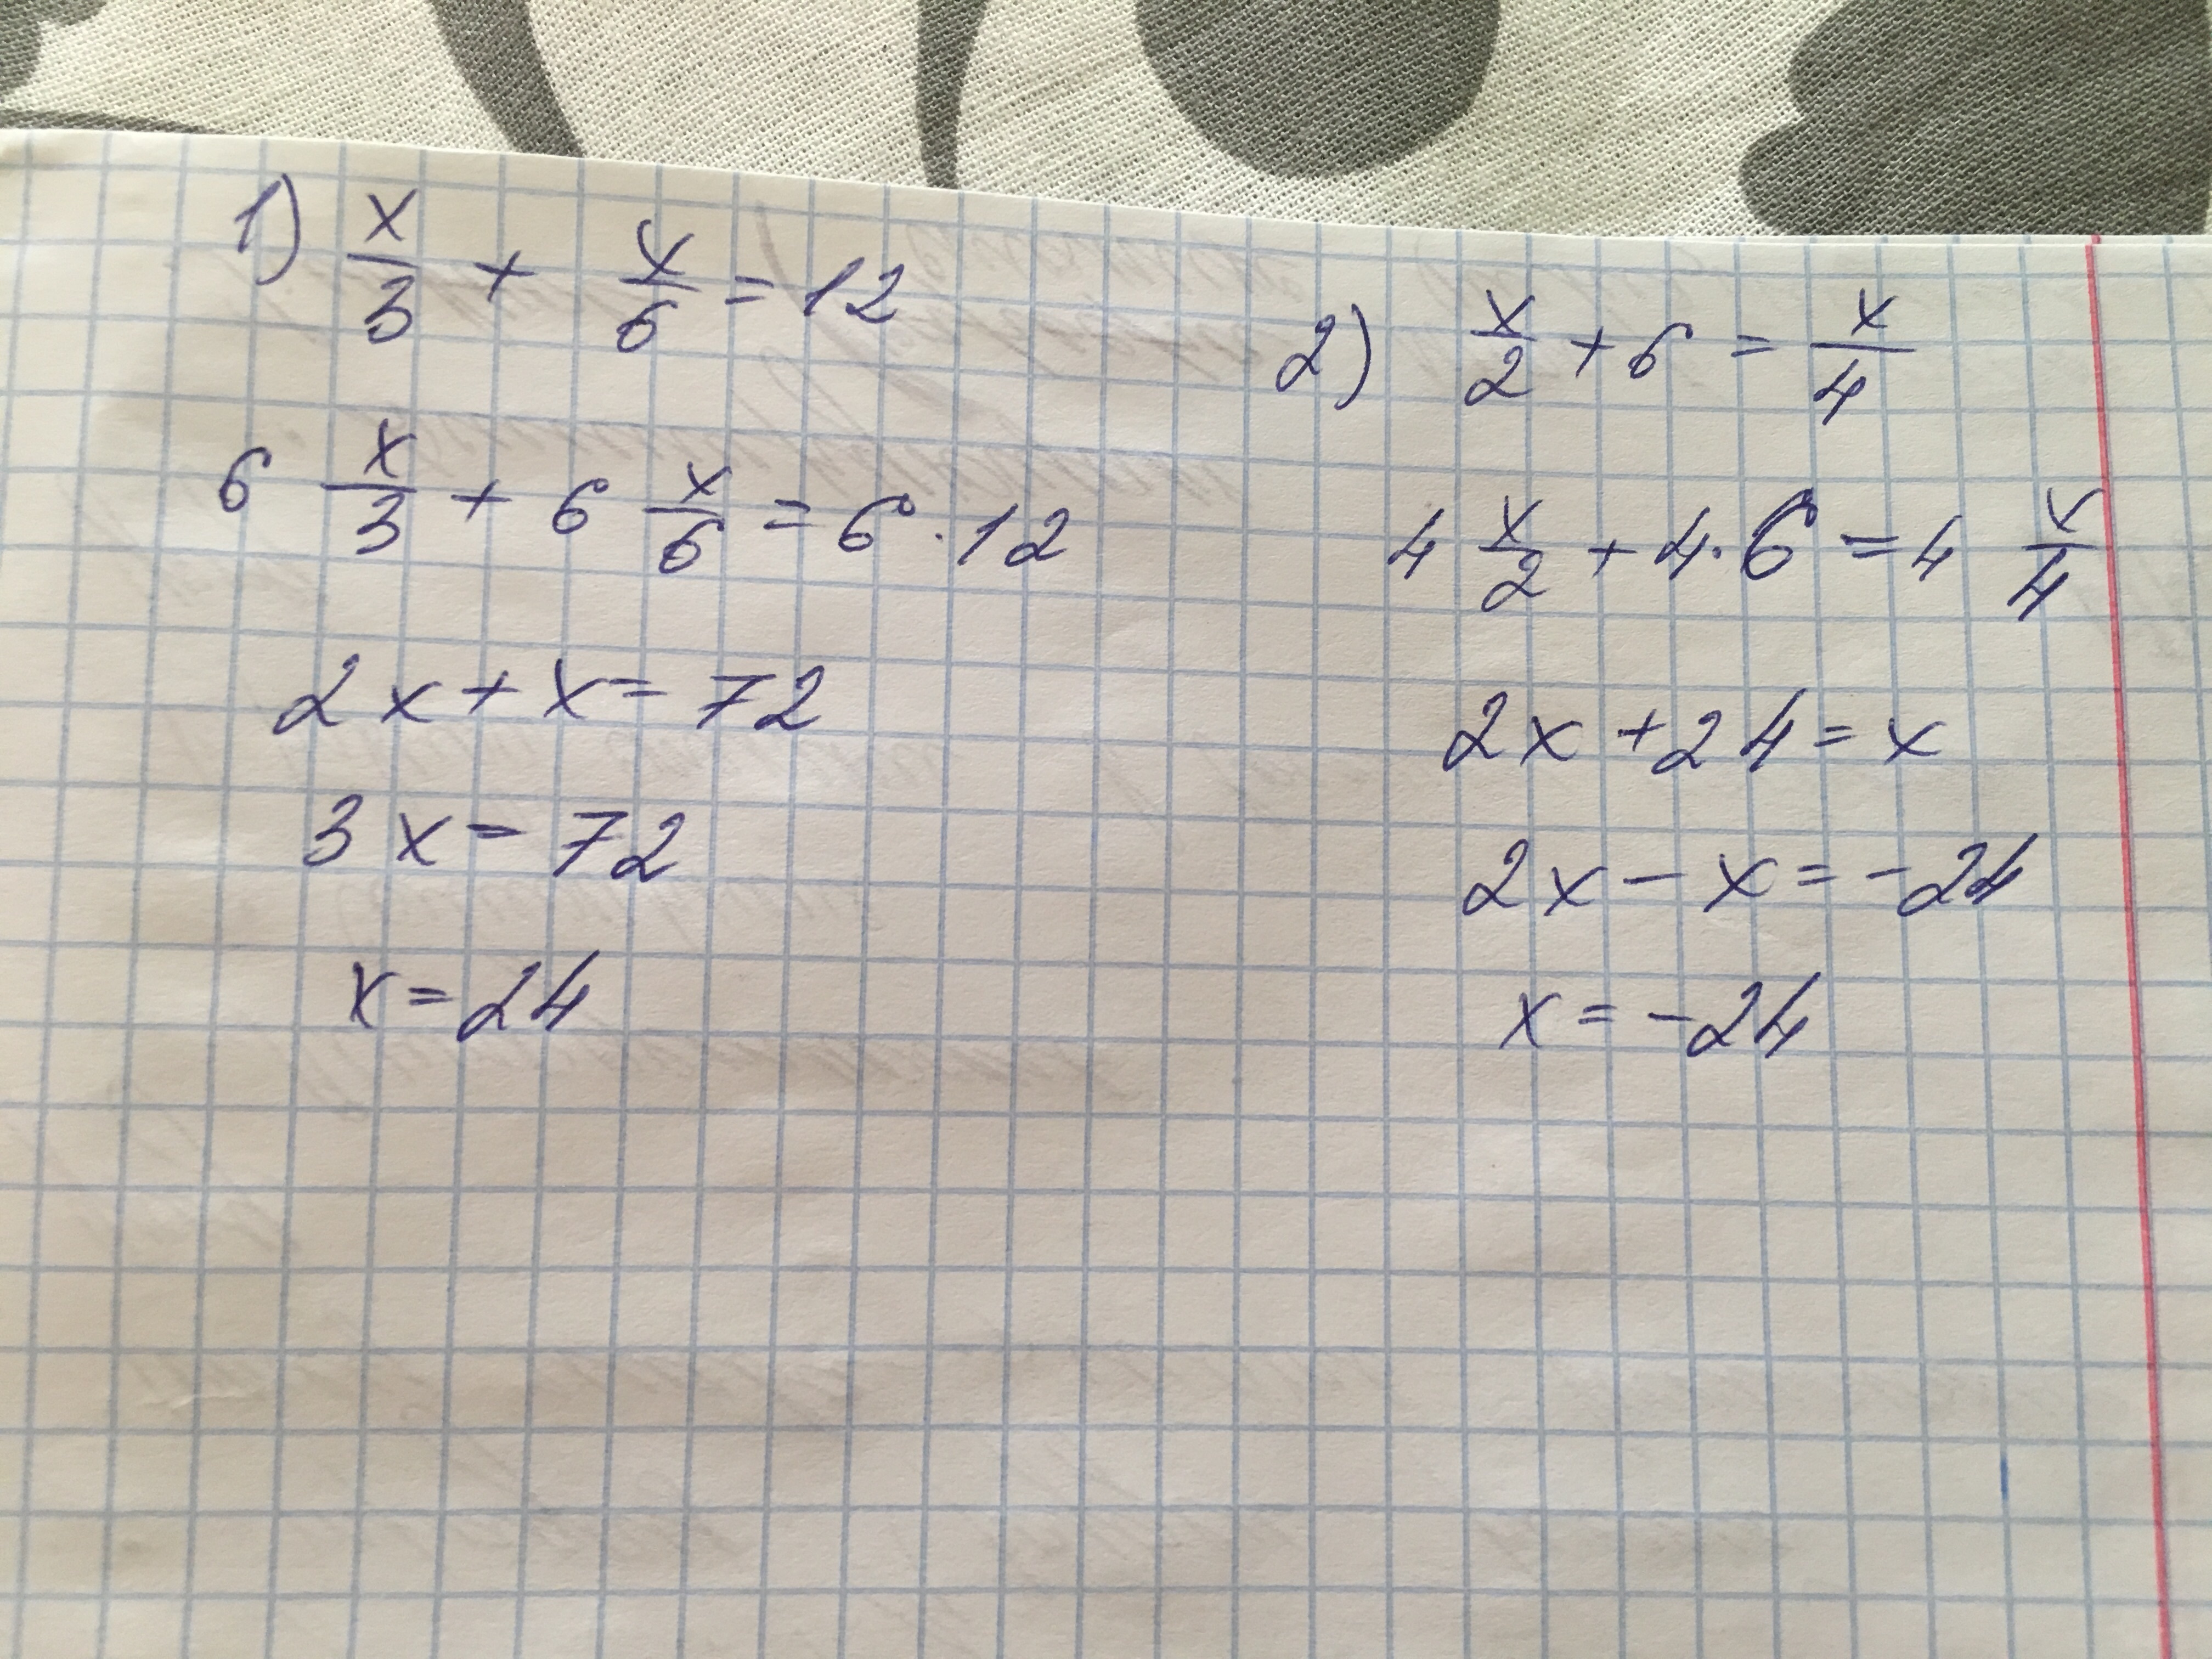 1) x/3 + x/6 = 12
6 x/3 + 6 x/6 = 6 · 12
2x + x = 72
3x = 72
x = 24
2) x/2 + 6 = x/4
4 x/2 + 4 · 6 = 4 x/4
2x + 24 = x
2x - x = -24
x = -24